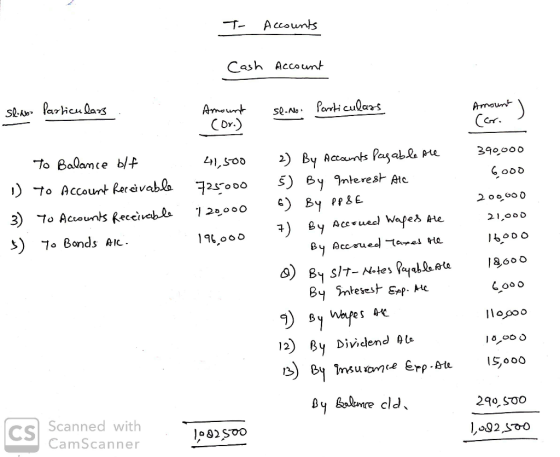 T- Accounts
Cash Account
Sl.No. Particulars Amount (Dr.) Sl.No. Particulars Amount (Cr.)
To Balance b/f 41,500
1) To Account Receivable 725000
3) To Accounts Receivable 120,000
5) To Bonds A/c. 196,000
1,082,500
2) By Accounts Payable A/c 390,000
5) By Interest A/c 6,000
6) By PP&E 200,000
7) By Accrued Wages A/c 21,000
By Accrued Taxes A/c 16,000
8) By S/T- Notes Payable A/c 18,000
By Interest Exp. A/c 6,000
9) By Wages A/c 110,000
12) By Dividend A/c 10,000
13) By Insurance Exp. A/c 15,000
By Balance c/d. 290,500
1,082,500
CS Scanned with
CamScanner